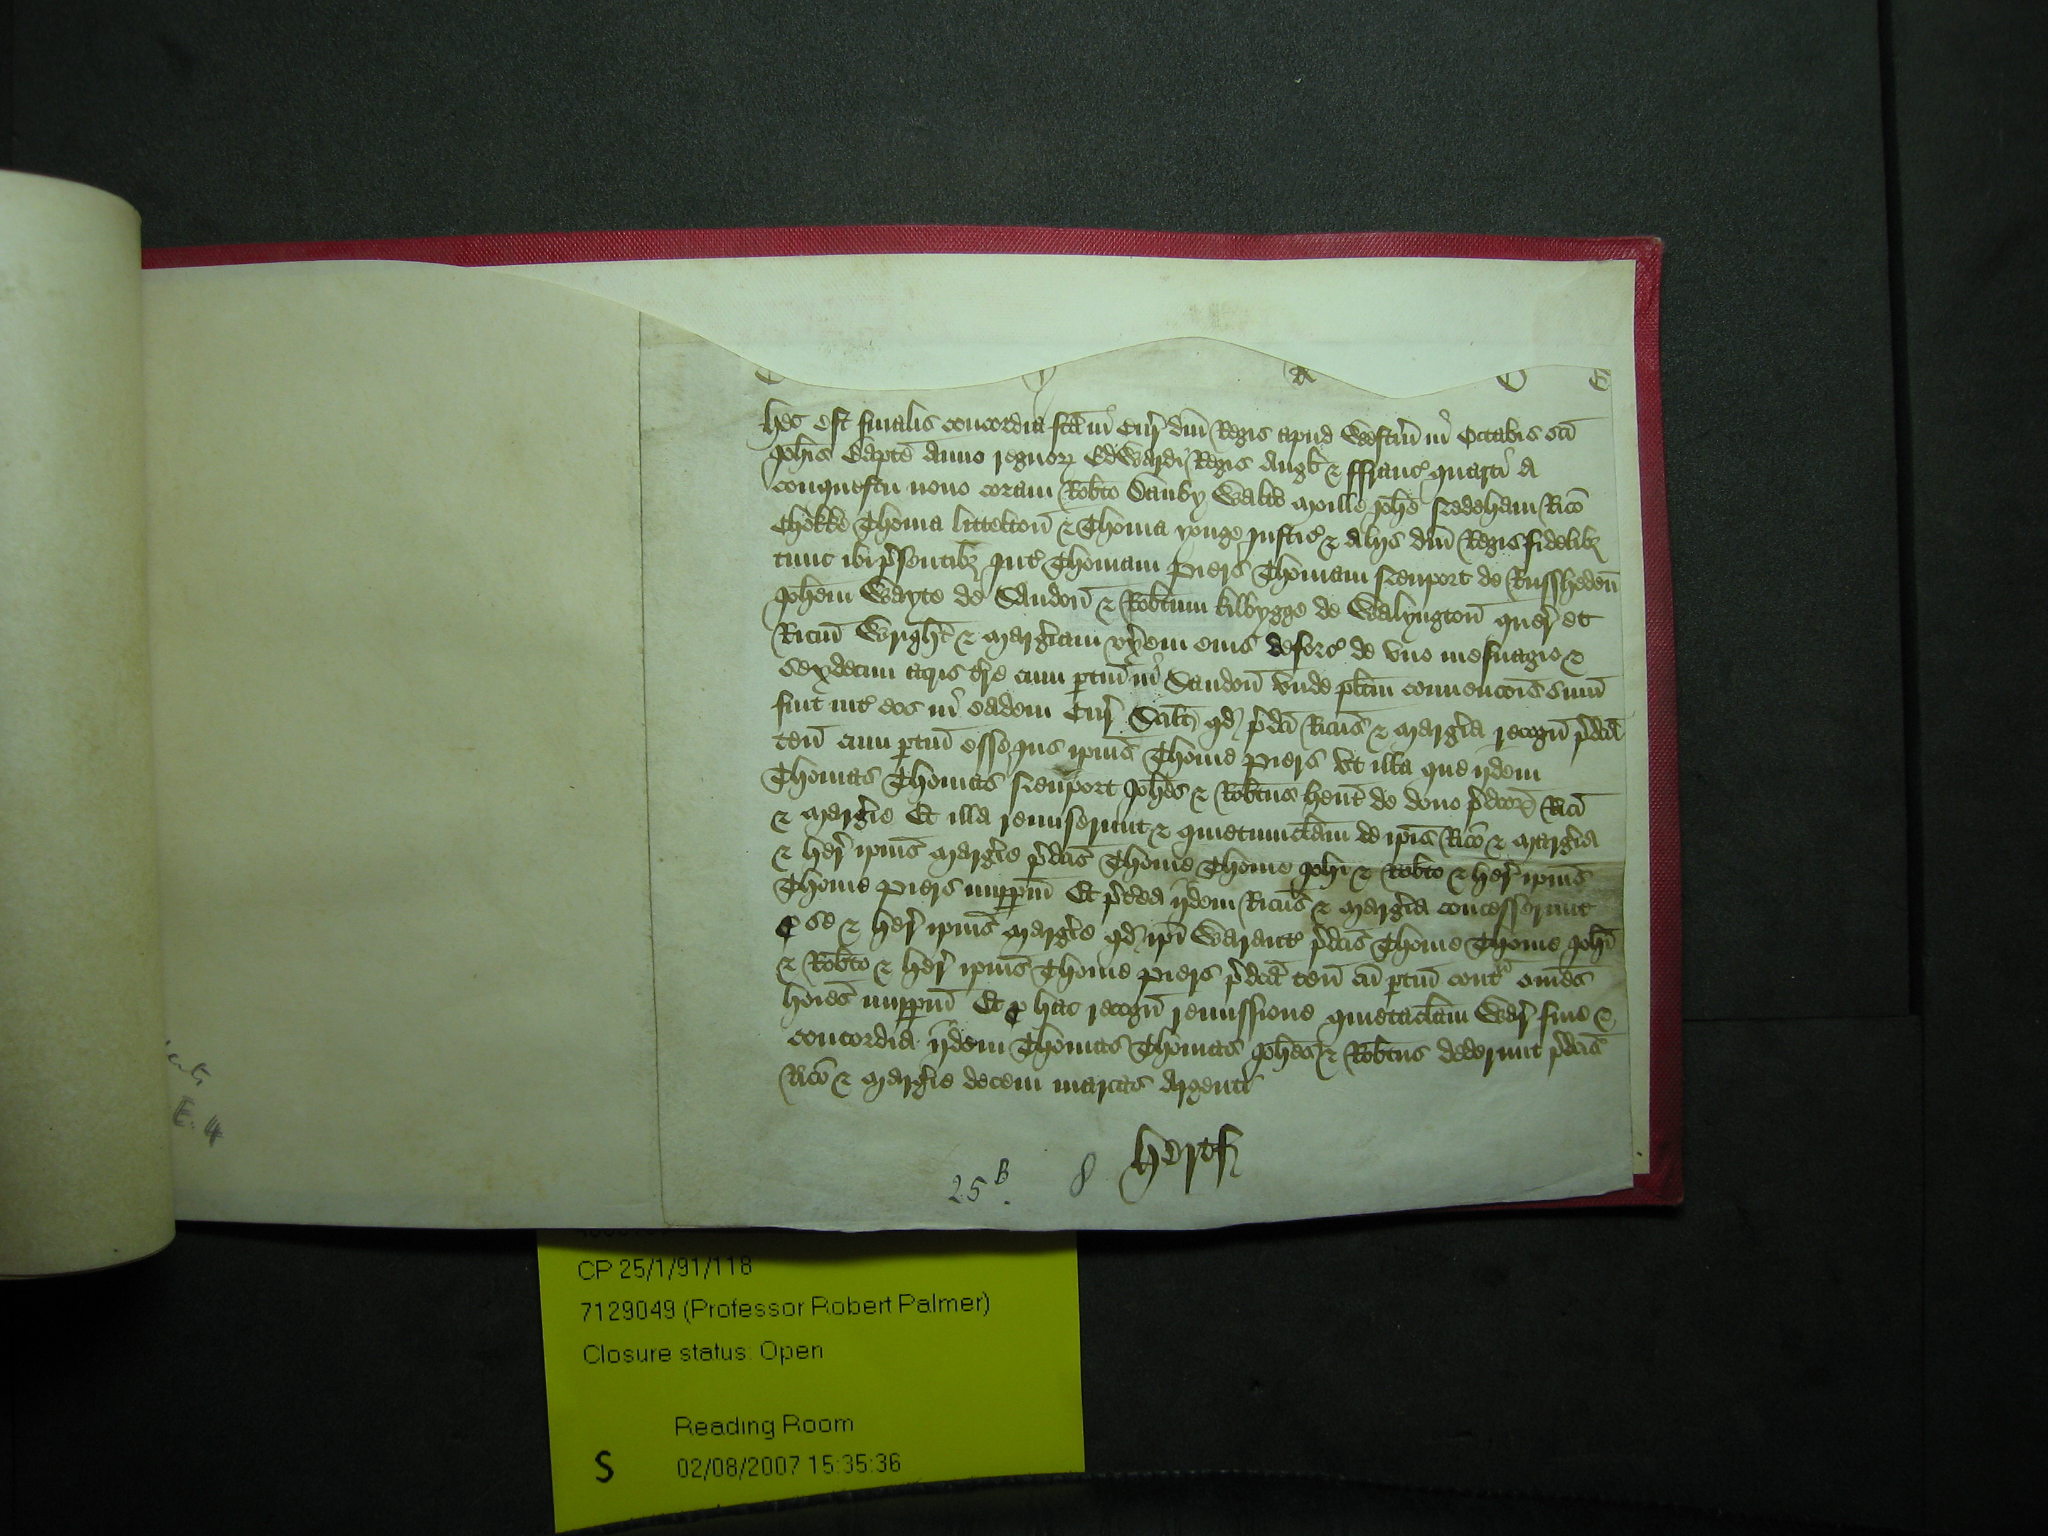 Hec est finalis concordia fca in Cur dni Regis apud Westm in Octabis sci
Johis Bapte Anno regnor Edwardi Regis Angl & ffranc quarti a
conquestu nono coram Robto Danby Walto Moille Johe Nedeham Rico
Chokke Thoma Littelton & Thoma yonge Justic & Aliis dni Regis fidelib
tunc ibi psentib Int Thomam Piers Thomam Newport de Russheden
Johem Wayte de Sandon & Robtum kilbygge de Walyngton quer et
Ricum Wright & Margiam uxem eius deforc de uno mesuagio &
sexdecim acris tre cum ptin in Sandon Unde plitm convencois sum
fuit int eos in eadem Cur Scilt qd pdci Ricus & Margia recogn pdca
ten cum ptin esse Jus ipius Thome Piers Ut illa que iidem
Thomas Thomas Newport Johes & Robtus hent de dono pdcor Rici
& Margie Et illa remiserunt & quietumclam de ipis Rico & Margia
& her ipius Margie pdcis Thome Thome Johi & Robto & her ipius
Thome Piers imppm Et pterea iidem Ricus & Margia concesserunt
p se & her ipius Margie qd ipi Warant pdcis Thome Thome Johi
& Robto & her ipius Thome Piers pdca ten cu ptin cont omes
hoies imppm Et p hac recogn remissione quietaclam War fine &
concordia iidem Thomas Thomas Johes & Robtus dederunt pdcis
Rico & Margie decem marcas Argenti
Hertf
25 B. 8
E. 4
CP 25/1/91/118
7129049 (Professor Robert Palmer)
Closure status: Open
Reading Room
S 02/08/2007 15:35:36